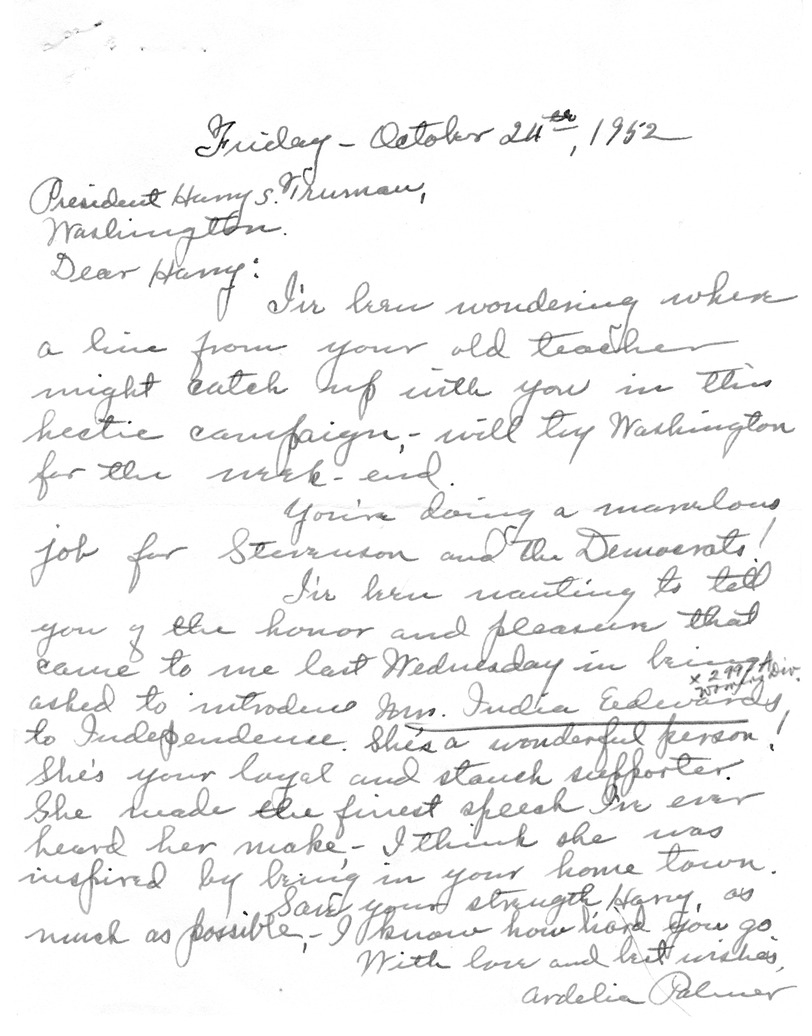 Friday - October 24th, 1952
President Harry S. Truman,
Washington.
Dear Harry:
I've been wondering where
a line from your old teacher
might catch up with you in this
hectic campaign, - will try Washington
for the week-end.
You're doing a marvelous
job for Stevenson and the Democrats!
I've been wanting to tell
you of the honor and pleasure that
came to me last Wednesday in being
x 2997A
Women's Div.
asked to introduce Mrs. India Edwards,
to Independence. She's a wonderful person!
She's your loyal and stauch supporter.
She made the finest speech I've ever
heard her make - I think she was
inspired by being in your home town.
Save your strength Harry, as
much as possible, - I know how hard you go
With love and best wishes,
Ardelia Palmer